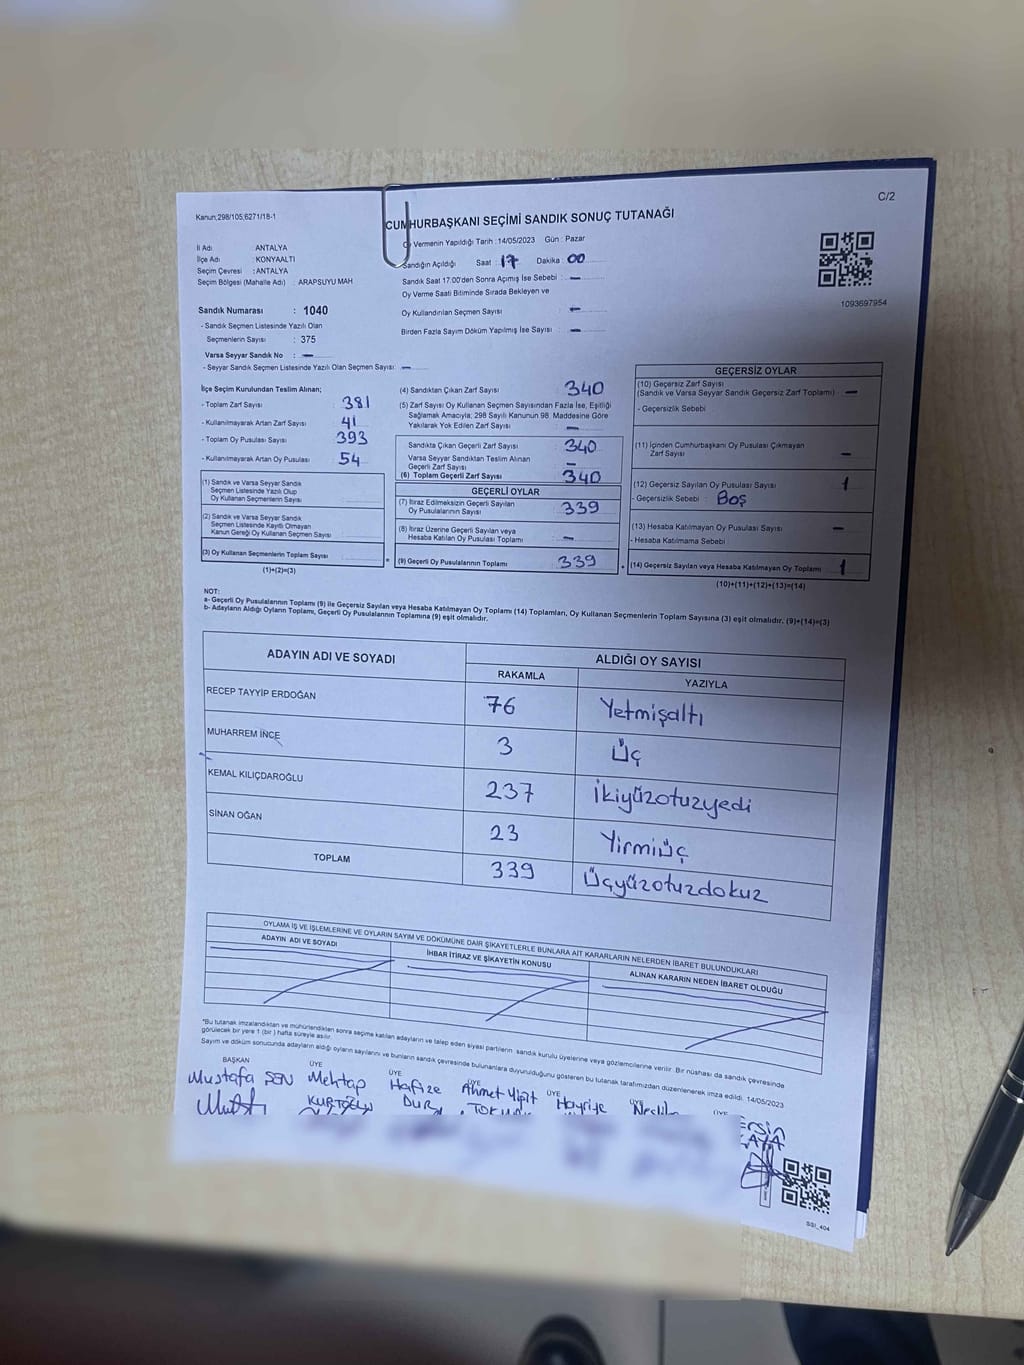 Kanun,298/105,6271/18-1
C/2
CUMHURBAŞKANI SEÇİMİ SANDIK SONUÇ TUTANAĞI
Oy Vermenin Yapıldığı Tarih :14/05/2023 Gün : Pazar
İl Adı ANTALYA
İlçe Adı : KONYAALTI
Seçim Çevresi : ANTALYA
Seçim Bölgesi (Mahalle Adı) : ARAPSUYU MAH
Sandığın Açıldığı Saat : 17 Dakika : 00
Sandık Saat 17:00'den Sonra Açımış İse Sebebi : —
Oy Verme Saati Bitiminde Sırada Bekleyen ve
Oy Kullandırılan Seçmen Sayısı : —
Birden Fazla Sayım Döküm Yapılmış İse Sayısı : —
1093697954
Sandık Numarası : 1040
- Sandık Seçmen Listesinde Yazılı Olan
Seçmenlerin Sayısı : 375
Varsa Seyyar Sandık No : —
- Seyyar Sandık Seçmen Listesinde Yazılı Olan Seçmen Sayısı: —
İlçe Seçim Kurulundan Teslim Alınan;
- Toplam Zarf Sayısı 381
- Kullanılmayarak Artan Zarf Sayısı 41
- Toplam Oy Pusulası Sayısı 393
- Kullanılmayarak Artan Oy Pusulası 54
(1) Sandık ve Varsa Seyyar Sandık
Seçmen Listesinde Yazılı Olup
Oy Kullanan Seçmenlerin Sayısı
(2) Sandık ve Varsa Seyyar Sandık
Seçmen Listesinde Kayıtlı Olmayan
Kanun Gereği Oy Kullanan Seçmen Sayısı
(3) Oy Kullanan Seçmenlerin Toplam Sayısı
(1)+(2)=(3)
=
(4) Sandıktan Çıkan Zarf Sayısı : 340
(5) Zarf Sayısı Oy Kullanan Seçmen Sayısından Fazla İse, Eşitliği
Sağlamak Amacıyla; 298 Sayılı Kanunun 98. Maddesine Göre
Yakılarak Yok Edilen Zarf Sayısı : —
Sandıkta Çıkan Geçerli Zarf Sayısı : 340
Varsa Seyyar Sandıktan Teslim Alınan
Geçerli Zarf Sayısı : —
(6) Toplam Geçerli Zarf Sayısı : 340
GEÇERLİ OYLAR
(7) İtiraz Edilmeksizin Geçerli Sayılan
Oy Pusulalarının Sayısı : 339
(8) İtiraz Üzerine Geçerli Sayılan veya
Hesaba Katılan Oy Pusulası Toplamı : —
(9) Geçerli Oy Pusulalarının Toplamı : 339
+
GEÇERSİZ OYLAR
(10) Geçersiz Zarf Sayısı
(Sandık ve Varsa Seyyar Sandık Geçersiz Zarf Toplamı) : —
- Geçersizlik Sebebi :
(11) İçinden Cumhurbaşkanı Oy Pusulası Çıkmayan
Zarf Sayısı : —
(12) Geçersiz Sayılan Oy Pusulası Sayısı : 1
- Geçersizlik Sebebi : Boş
(13) Hesaba Katılmayan Oy Pusulası Sayısı : —
- Hesaba Katılmama Sebebi :
(14) Geçersiz Sayılan veya Hesaba Katılmayan Oy Toplamı : 1
(10)+(11)+(12)+(13)=(14)
NOT:
a- Geçerli Oy Pusulalarının Toplamı (9) ile Geçersiz Sayılan veya Hesaba Katılmayan Oy Toplamı (14) Toplamları, Oy Kullanan Seçmenlerin Toplam Sayısına (3) eşit olmalıdır. (9)+(14)=(3)
b- Adayların Aldığı Oyların Toplamı, Geçerli Oy Pusulalarının Toplamına (9) eşit olmalıdır.
ADAYIN ADI VE SOYADI ALDIĞI OY SAYISI
RAKAMLA YAZIYLA
RECEP TAYYİP ERDOĞAN 76 Yetmişaltı
MUHARREM İNCE 3 Üç
KEMAL KILIÇDAROĞLU 237 İkiyüzotuzyedi
SİNAN OĞAN 23 Yirmiüç
TOPLAM 339 Üçyüzotuzdokuz
OYLAMA İŞ VE İŞLEMLERİNE VE OYLARIN SAYIM VE DÖKÜMÜNE DAİR ŞİKAYETLERLE BUNLARA AİT KARARLARIN NELERDEN İBARET BULUNDUKLARI
ADAYIN ADI VE SOYADI İHBAR İTİRAZ VE ŞİKAYETİN KONUSU ALINAN KARARIN NEDEN İBARET OLDUĞU
*Bu tutanak imzalandıktan ve mühürlendikten sonra seçime katılan adayların ve talep eden siyasi partilerin sandık kurulu üyelerine veya gözlemcilerine verilir. Bir nüshası da sandık çevresinde
görülecek bir yere 1 (bir ) hafta süreyle asılır.
Sayım ve döküm sonucunda adayların aldığı oyların sayılarını ve bunların sandık çevresinde bulunanlara duyurulduğunu gösteren bu tutanak tarafımızdan düzenlenerek imza edildi. 14/05/2023
BAŞKAN ÜYE ÜYE ÜYE ÜYE ÜYE ÜYE
Mustafa ŞEN Mehtap Hafize Ahmet Yiğit Hayriye
SSI_404